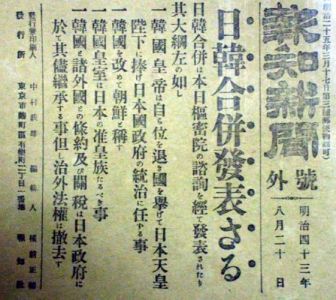 報知新聞
號外
明治四十三年
八月二十
日韓合併發表さる
日韓合併は本日樞密院の諮詢を經て發表されたり
其大綱左の如し
一韓國皇帝は自ら位を退き國を擧げて日本天皇
陛下に捧げ日本國政府の統治に任する事
一韓國を改めて朝鮮と稱す
一韓國皇室は日本の准皇族たるべき事
一韓國と諸外國との條約及び關稅は日本政府に
於て其儘繼承する事但し治外法權は撤去す
發行兼印刷人
編輯人
發行所
東京市麴町區有樂町
報知社